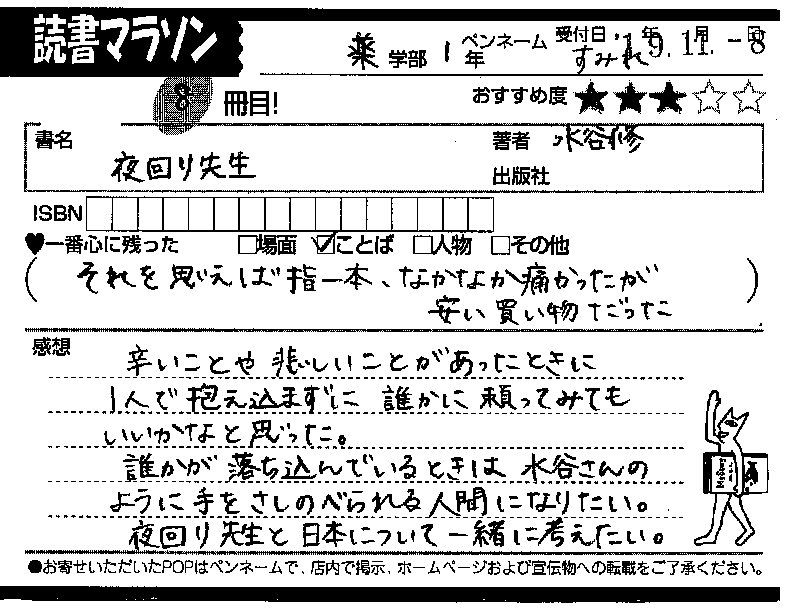 読書マラソン
薬学部 1年 ペンネーム すみれ 受付日 '19.11.-8 年 月 日
8冊目! おすすめ度 ★★★☆☆
書名 夜回り先生 著者 水谷修
出版社
ISBN
♥一番心に残った □場面 ☑ことば □人物 □その他
(それを思えば指一本、なかなか痛かったが
安い買い物だった)
感想
辛いことや悲しいことがあったときに
1人で抱え込まずに 誰かに頼ってみても
いいかなと思った。
誰かが落ち込んでいるときは 水谷さんの
ように手をさしのべられる人間になりたい。
夜回り先生と日本について一緒に考えたい。
●お寄せいただいたPOPはペンネームで、店内で掲示、ホームページおよび宣伝物への転載をご了承ください。